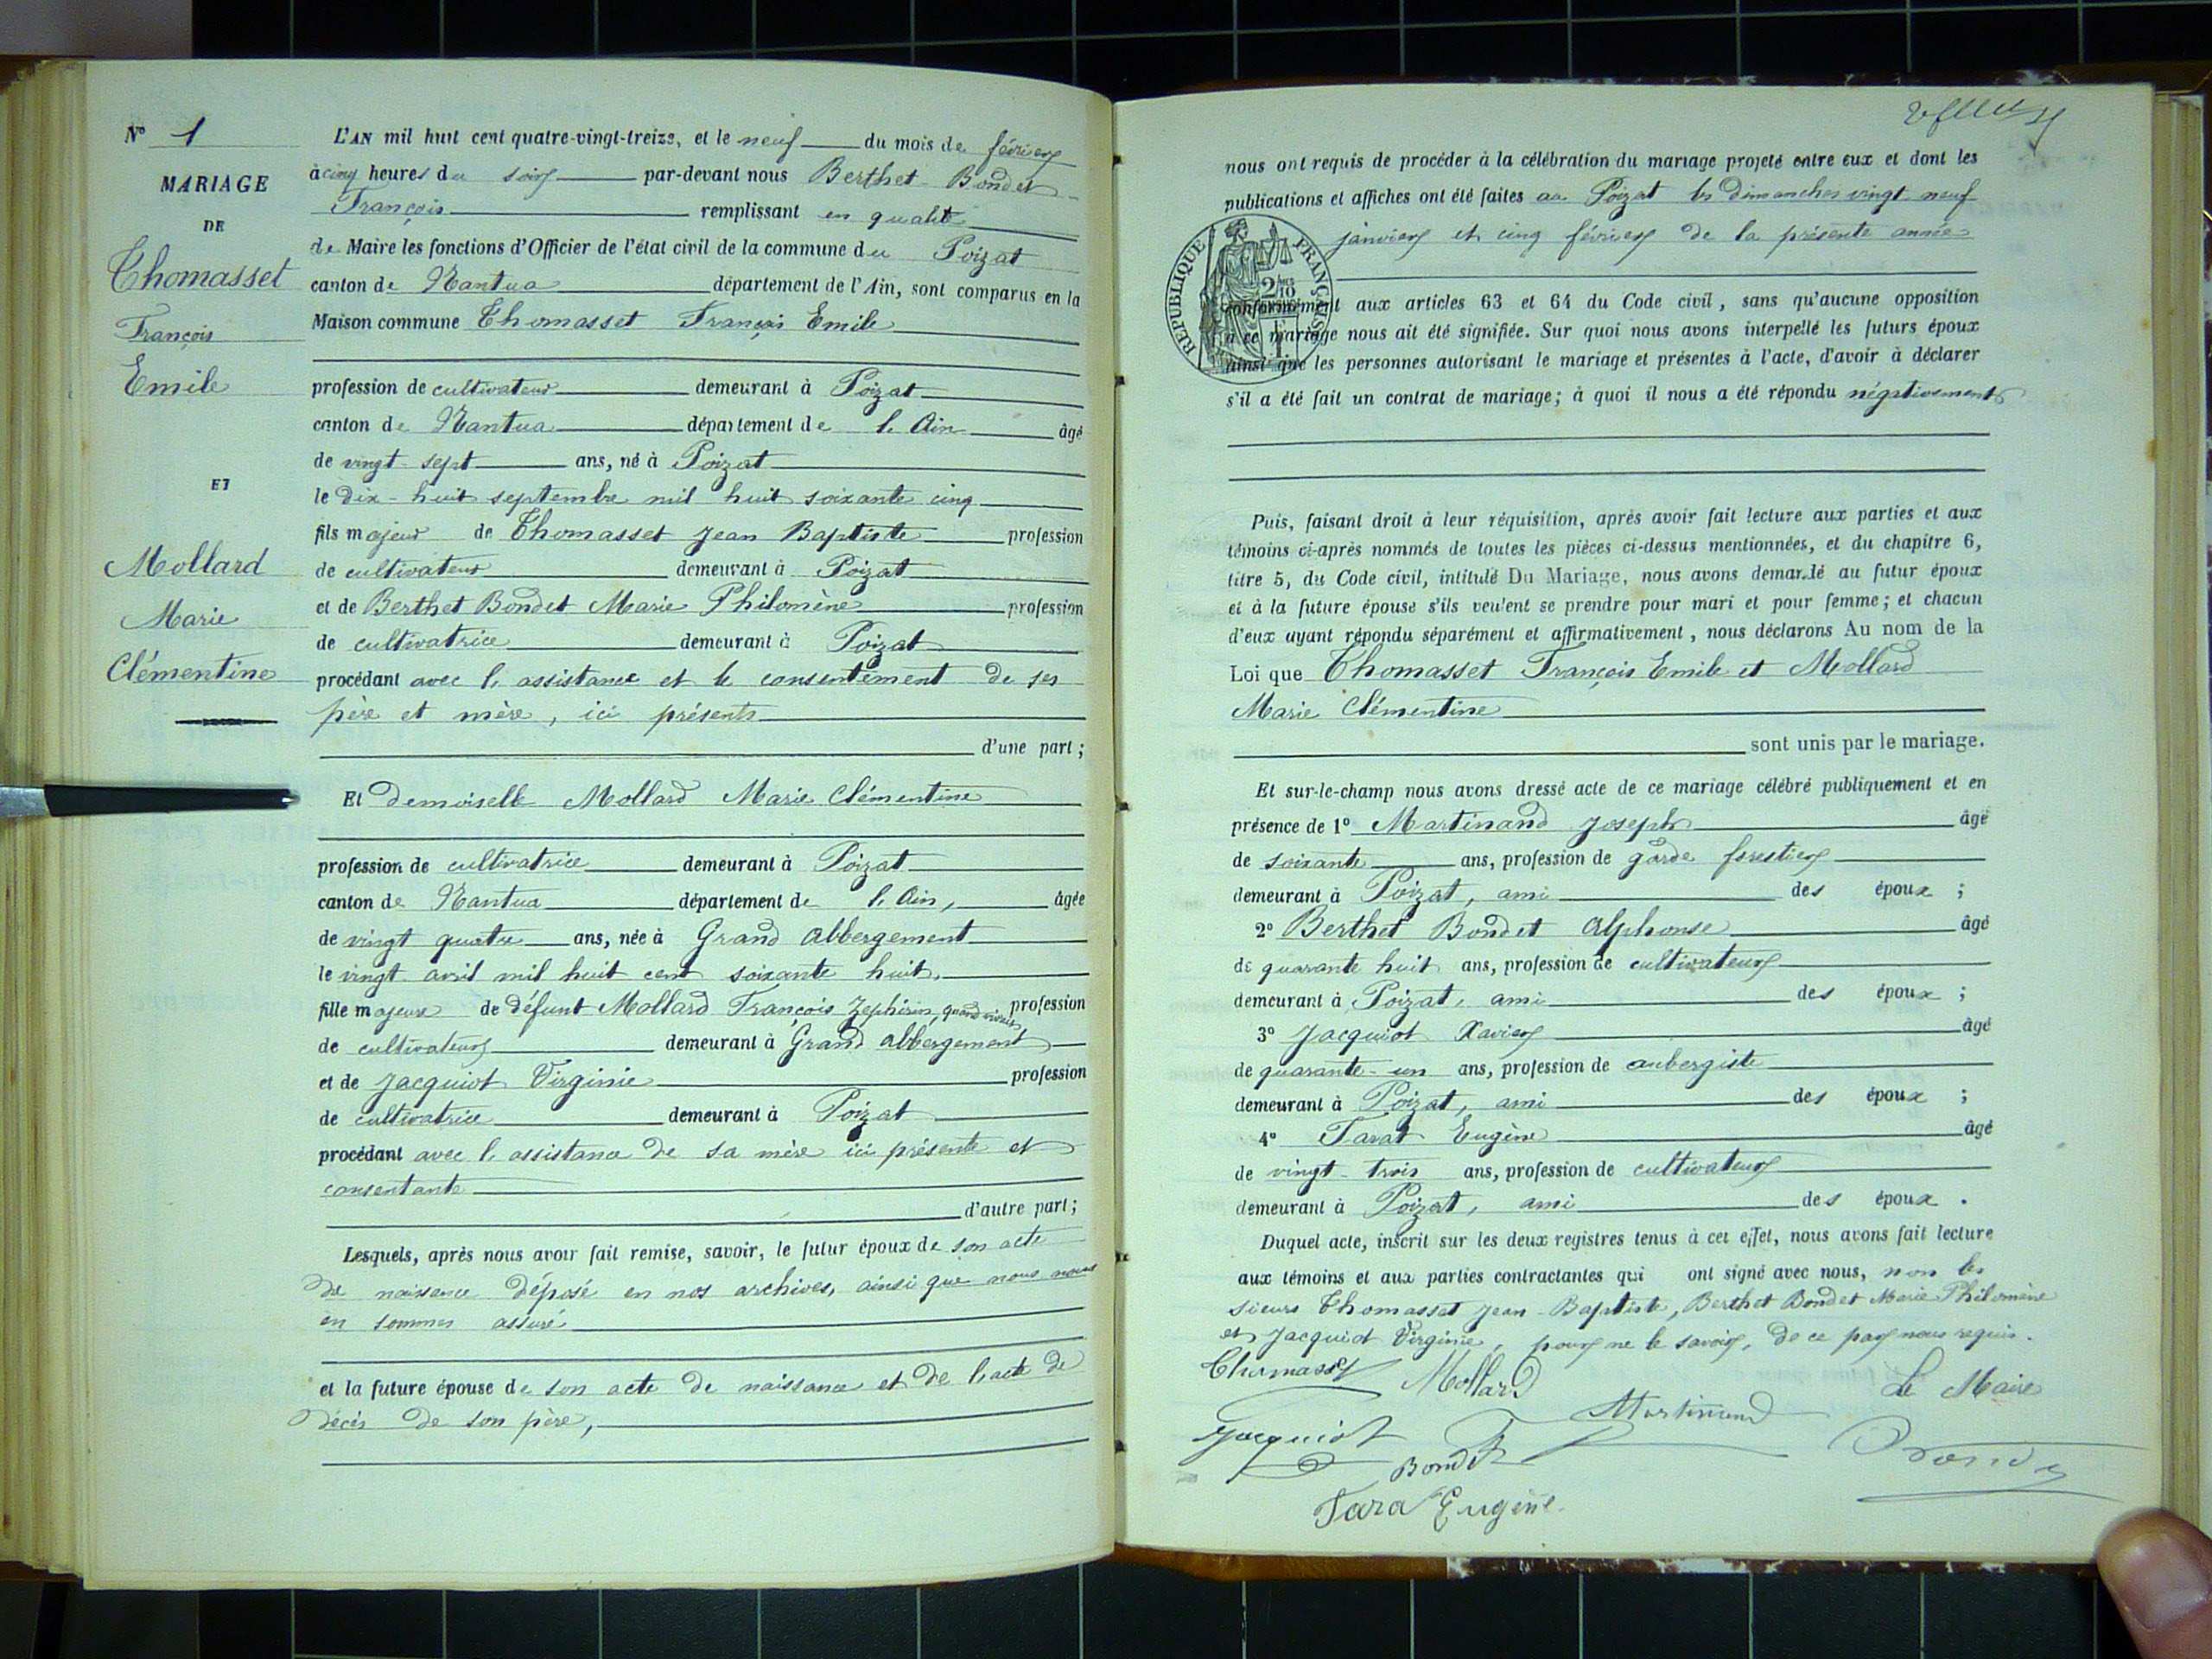 N° 1
MARIAGE
DE
Thomasset
François
Emile
ET
Mollard
Marie
Clémentine
L'AN mil huit cent quatre-vingt-treize, et le neuf du mois de février
à cinq heures du soir par-devant nous Berthet Bondet
François remplissant en qualité
de Maire les fonctions d'Officier de l'état civil de la commune du Poizat
canton de Nantua département de l'Ain, sont comparus en la
Maison commune Thomasset François Emile
profession de cultivateur demeurant à Poizat
canton de Nantua département de l'Ain âgé
de vingt-sept ans, né à Poizat
le dix-huit septembre mil huit soixante cinq
fils majeur de Thomasset Jean Baptiste profession
de cultivateur demeurant à Poizat
et de Berthet Bondet Marie Philomène profession
de cultivatrice demeurant à Poizat
procédant avec l'assistance et le consentement de ses
père et mère, ici présents
d'une part;
Et demoiselle Mollard Marie Clémentine
profession de cultivatrice demeurant à Poizat
canton de Nantua département de l'Ain, âgée
de vingt quatre ans, née à Grand Abbergement
le vingt avril mil huit cent soixante huit,
fille majeure de défunt Mollard François Zéphirin, quand vivait profession
de cultivateur demeurant à Grand Abbergement
et de Jacquiot Virginie profession
de cultivatrice demeurant à Poizat
procédant avec l'assistance de sa mère ici présente et
consentante
d'autre part;
Lesquels, après nous avoir fait remise, savoir, le futur époux de son acte
de naissance déposé en nos archives, ainsi que nous nous
en sommes assuré
et la future épouse de son acte de naissance et de l'acte de
décès de son père,
nous ont requis de procéder à la célébration du mariage projeté entre eux et dont les
publications et affiches ont été faites au Poizat les dimanches vingt neuf
janvier et cinq février de la présente année
RÉPUBLIQUE FRANÇAISE
conformément aux articles 63 et 64 du Code civil, sans qu'aucune opposition
à ce mariage nous ait été signifiée. Sur quoi nous avons interpellé les futurs époux
ainsi que les personnes autorisant le mariage et présentes à l'acte, d'avoir à déclarer
s'il a été fait un contrat de mariage; à quoi il nous a été répondu négativement
Puis, faisant droit à leur réquisition, après avoir fait lecture aux parties et aux
témoins ci-après nommés de toutes les pièces ci-dessus mentionnées, et du chapitre 6,
titre 5, du Code civil, intitulé Du Mariage, nous avons demandé au futur époux
et à la future épouse s'ils veulent se prendre pour mari et pour femme; et chacun
d'eux ayant répondu séparément et affirmativement, nous déclarons Au nom de la
Loi que Thomasset François Emile et Mollard
Marie Clémentine
sont unis par le mariage.
Et sur-le-champ nous avons dressé acte de ce mariage célébré publiquement et en
présence de 1° Martinand Joseph âgé
de soixante ans, profession de garde forestier
demeurant à Poizat, ami des époux ;
2° Berthet Bondet Alphonse âgé
de quarante huit ans, profession de cultivateur
demeurant à Poizat, ami des époux ;
3° Jacquiot Xavier âgé
de quarante-un ans, profession de aubergiste
demeurant à Poizat, ami des époux ;
4° Tavat Eugène âgé
de vingt-trois ans, profession de cultivateur
demeurant à Poizat, ami des époux .
Duquel acte, inscrit sur les deux registres tenus à cet effet, nous avons fait lecture
aux témoins et aux parties contractantes qui ont signé avec nous, non les
sieurs Thomasset Jean-Baptiste, Berthet Bondet Marie Philomène
et Jacquiot Virginie, pour ne le savoir, de ce par nous requis.
Thomasset Mollard Le Maire
Jacquiot Bondet Martinand Bondet
Tara Eugène